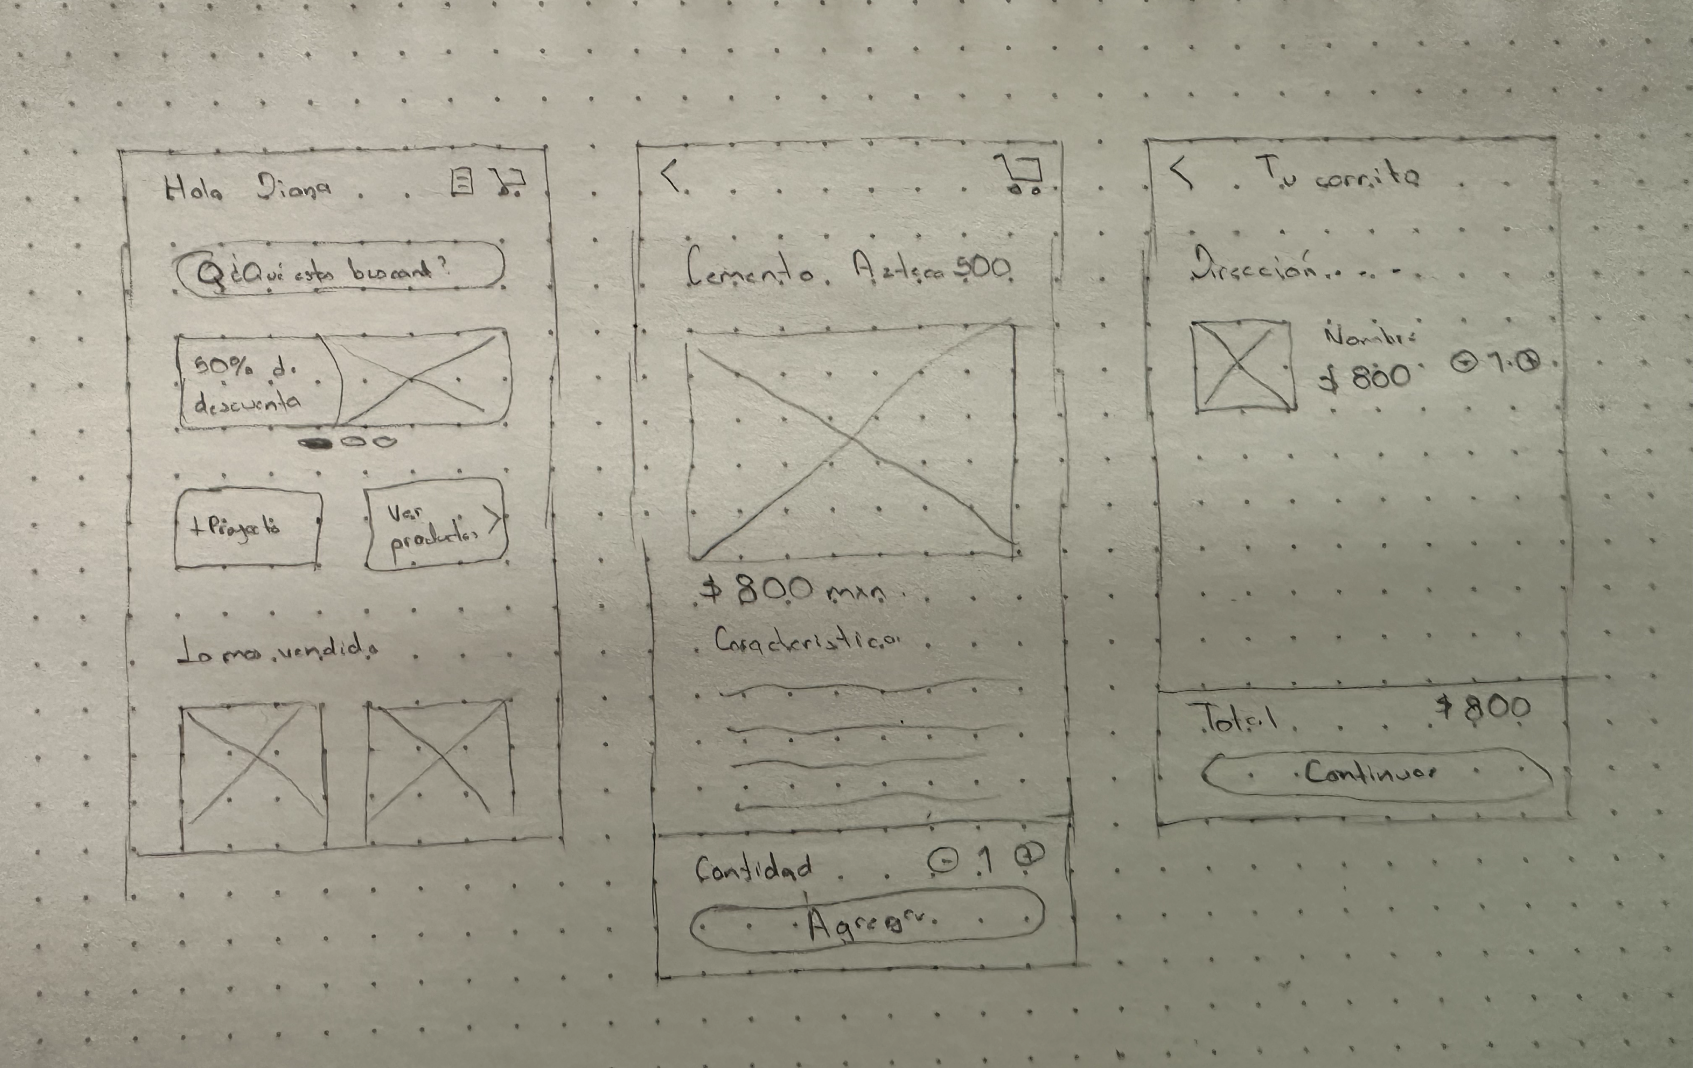 Hola Diana
¿Qué estas buscand?
50% de
descuento
+Proyecto
Ver
productos >
Lo mas vendido
<
Cemento Azteca 500
$ 800 mxn
Caracteristicas
Cantidad - 1 +
Agregar
< Tu carrito
Dirección......
Nombre
$ 800 - 1 +
Total $ 800
Continuar